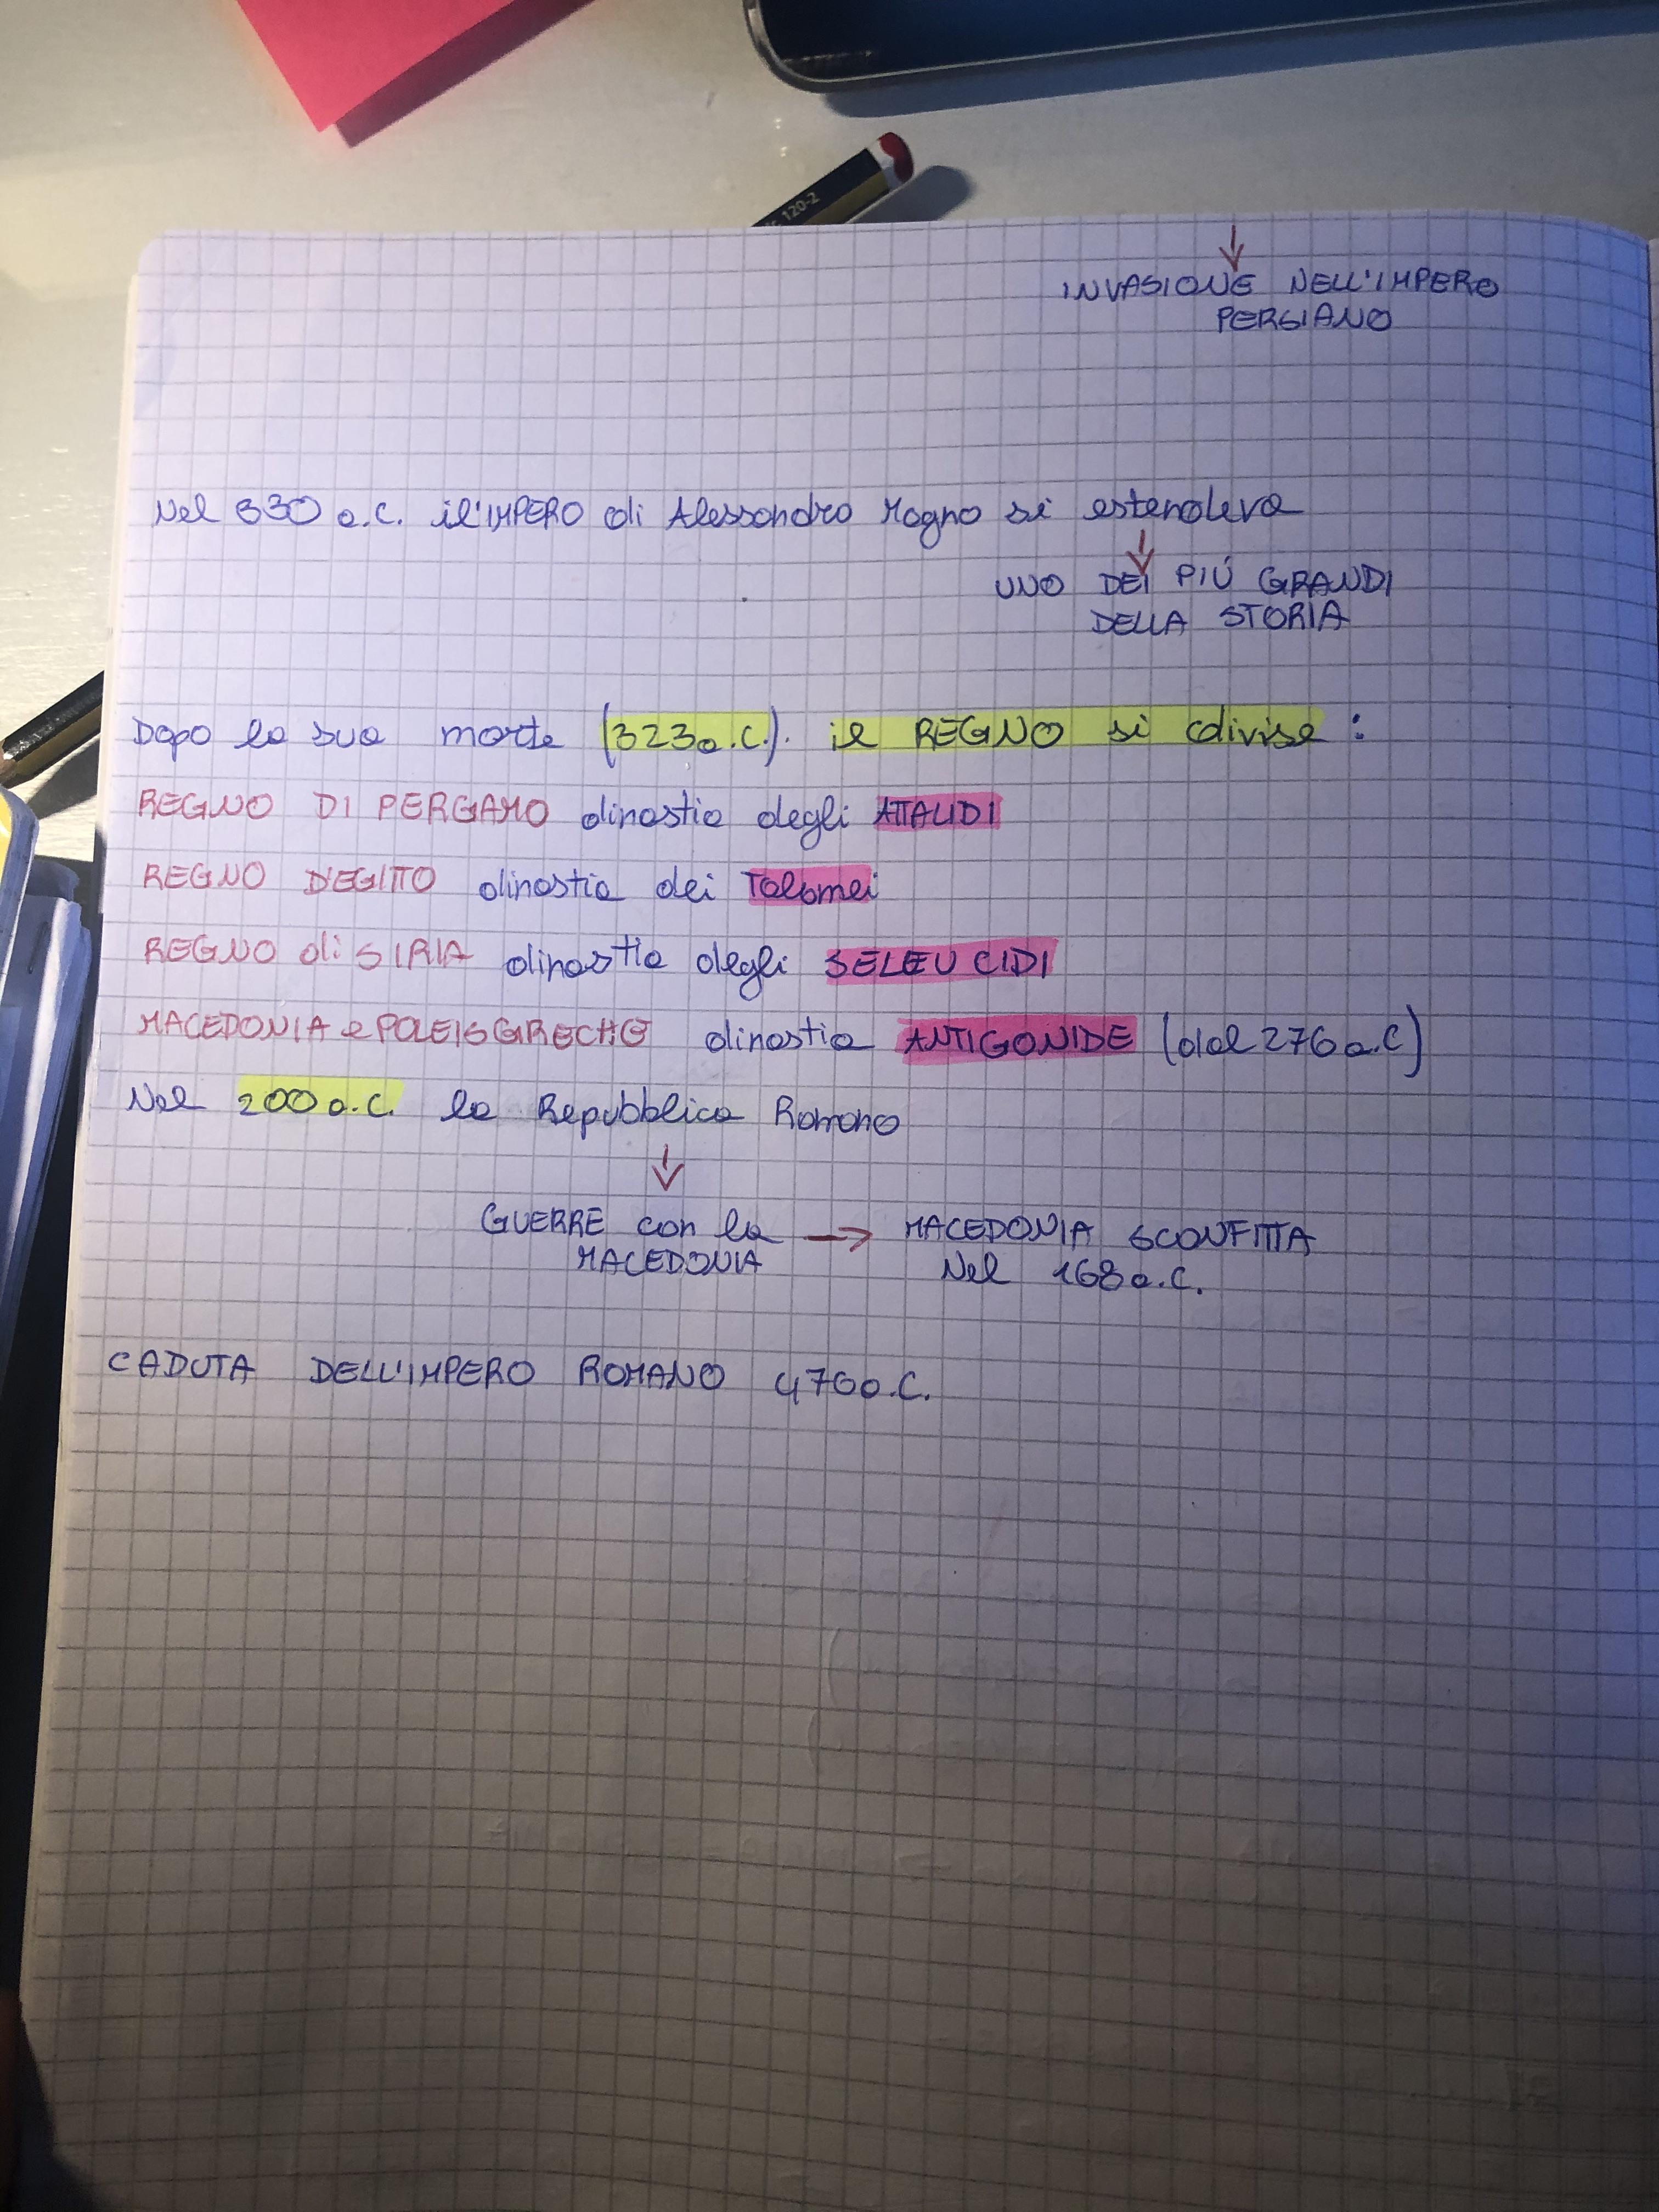 120-2
INVASIONE NELL'IMPERO
PERSIANO
Nel 330 a.C. il'IMPERO di Alessandro Magno si estendeva
UNO DEI PIÚ GRANDI
DELLA STORIA
Dopo la sua morte (323a.C.). il REGNO si divise:
REGNO DI PERGAMO dinastia degli ATTALIDI
REGNO D'EGITTO dinastia dei Tolomei
REGNO di SIRIA dinastia degli SELEUCIDI
MACEDONIA e POLEIS GRECHE dinastia ANTIGONIDE (dal 276 a.C)
Nel 200 a.C. la Repubblica Romana
GUERRE con la → MACEDONIA SCONFITTA
MACEDONIA Nel 168 a.C.
CADUTA DELL'IMPERO ROMANO 476 a.C.